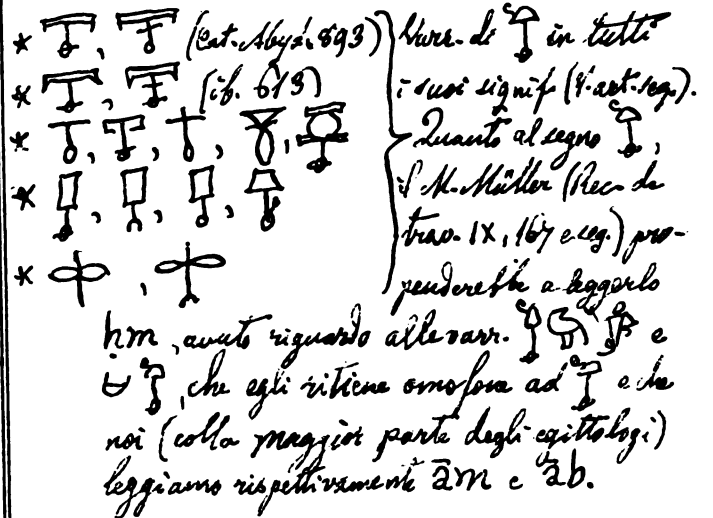 * , (Cat. Abyd. 893)
* , (ib. 613)
* , , , ,
* , , ,
* ,
Varr. di in tutti
i suoi signif. (V. art. seg.).
Quanto al segno ,
il M. Müller (Rec. de
trav. IX, 167 e seg.) pro-
penderebbe a leggerlo
ḥm, avuto riguardo alle varr. e
, che egli ritiene omofone ad e che
noi (colla maggior parte degli egittologi)
leggiamo rispettivamente ām e āb.